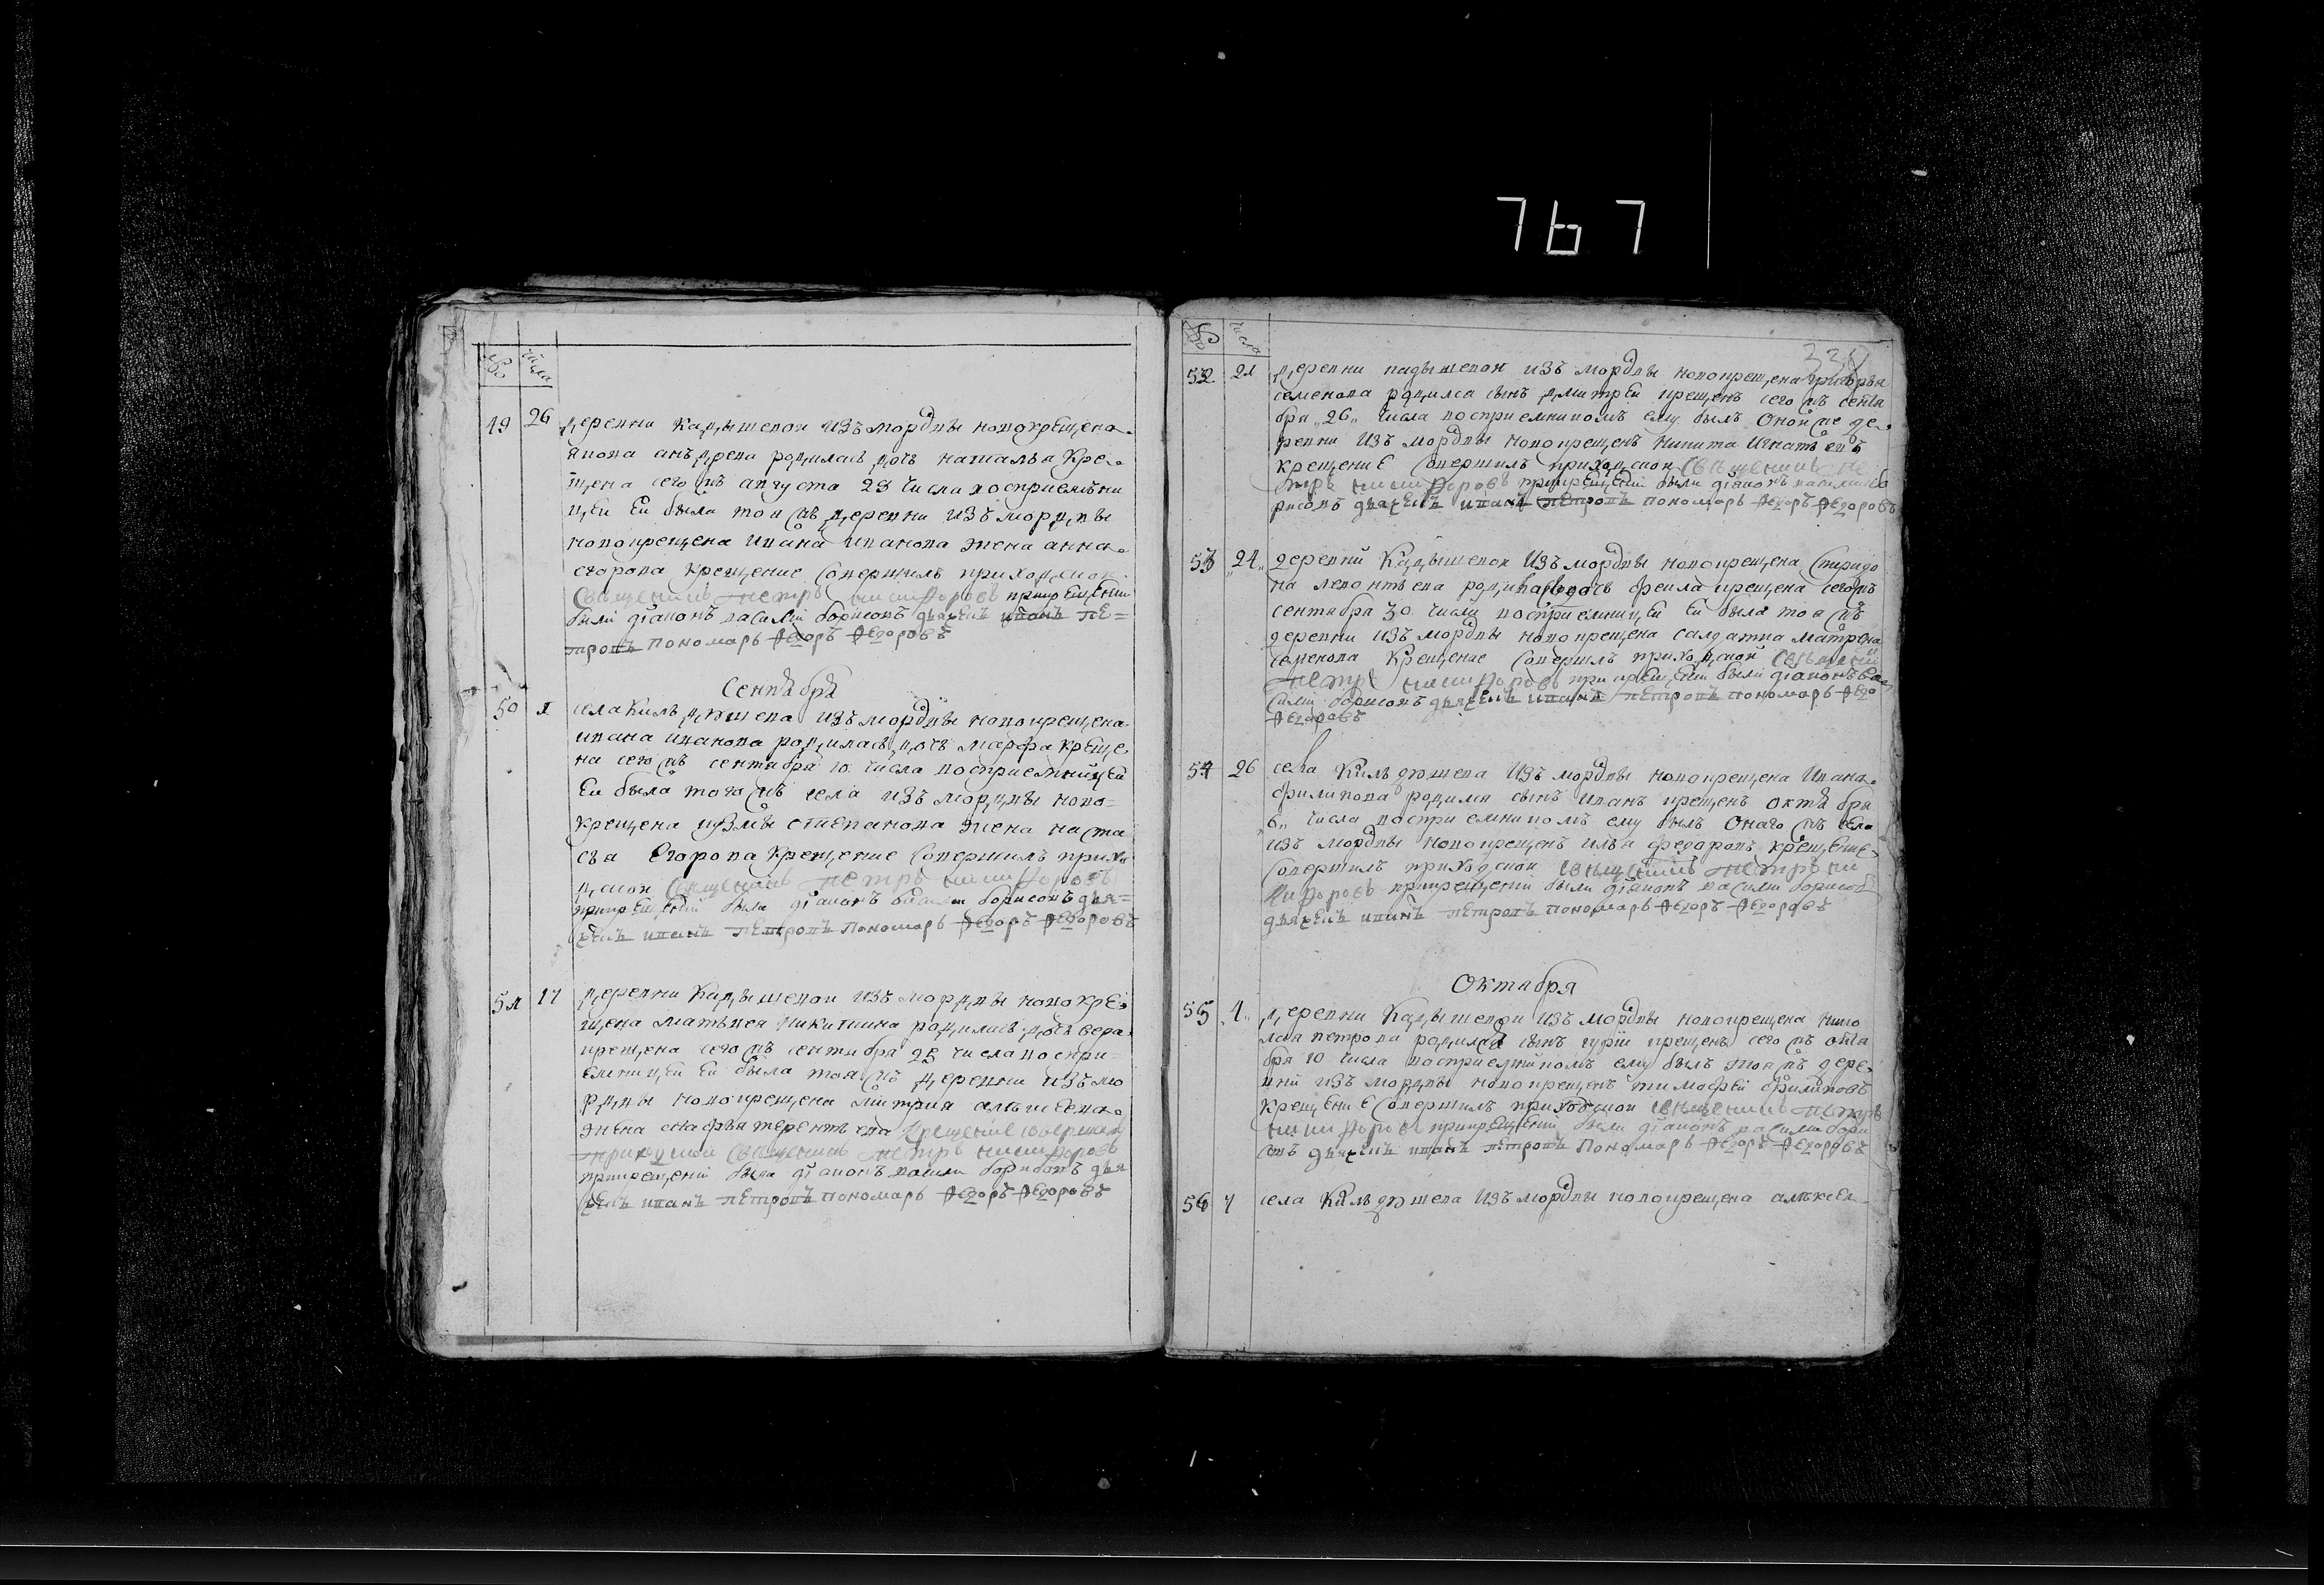 767
№ числа
49 26 деревни Кадышевой изъ мордвы новокрещена
якова андреева родилась дочь наталья кре-
щена сего мѣ августа 29 числа восприемни
цей ей была той мѣ деревни изъ мордвы
новокрещена ивана иванова жена анна
егорова крещение совершилъ приходской
священникъ петръ никифоровъ при крещении
были дiаконъ василiй борисовъ дьячекъ иванъ пе=
тровъ пономарь федоръ федоровъ
Сентября
50 1 села Кильдюшева изъ мордвы новокрещена
ивана иванова родилась дочь марфа креще
на сего мѣ сентября 10 числа восприемницей
ей была того мѣ села изъ мордвы ново=
крещена кузмы степанова жена наста
сья Егорова крещение совершилъ прихо
дской священникъ петръ никифоровъ
при крещенiи были дiаконъ василiй борисовъ дья=
чекъ иванъ петровъ пономарь федоръ федоровъ
51 17 деревни Кадышевой изъ мордвы новокре
щена матвея Никитина родилась дочь вера
крещена сего мѣ сентября 25 числа воспри=
емницей ей была тоя мѣ деревни изъ мо
рдвы новокрещена митрия алексеева
жена терентьева крещение совершил
приходской священникъ петръ никифоровъ
при крещенiи были дiаконъ василiй борисовъ дья
чекъ иванъ петровъ пономарь федоръ федоровъ
№ числа
52 21 деревни кадышевой изъ мордвы новокрещена григорья
семенова родился сынъ дмитрей крещенъ сего мѣ сентя
бря „26„ числа восприемникомъ ему былъ оной же де
ревни изъ мордвы новокрещенъ никита игнатьевъ
крещение совершилъ приходской священникъ пе
тръ никифоровъ при крещенiи были дiаконъ василiй бо
рисовъ дьячекъ иванъ петровъ пономарь федоръ федоровъ
53 24 деревнй Кадышевой изъ мордвы новокрещена спиридо
на леонтьева родилась дочь фекла крещена сего мѣ
сентября 30 числа восприемницей ей была тоя мѣ
деревни изъ мордвы новокрещена салдатка матрена
семенова крещение совершилъ приходской священникъ
петръ никифоровъ при крещенiи были дiаконъ ва
силiй борисовъ дьячекъ иванъ петровъ пономарь федо
федоровъ
54 26 села Кильдюшева изъ мордвы новокрещена ивана
филипова родился сынъ иванъ крещенъ октября
6„ числа восприемникомъ ему былъ онаго мѣ села
изъ мордвы новокрещенъ илья федаровъ крещение
совершилъ приходской священникъ петръ ни
кифоровъ при крещенiи были дiаконъ василiй борисов
дьячекъ иванъ петровъ пономарь федоръ федоровъ
Октября
55 1 деревни Кадышевой изъ мордвы новокрещена нико
лая петрова родился сынъ гурiй крещенъ сего мѣ октя
бря 10 числа восприемникомъ ему былъ тоя мѣ дере
внй изъ мордвы новокрещенъ тимофей филиповъ
крещение совершилъ приходской священникъ петръ
никифоровъ при крещенiи были дiаконъ василiй бори
совъ дьячекъ иванъ петровъ пономарь федоръ федоровъ
56 4 села Кильдюшева изъ мордвы новокрещена алексея